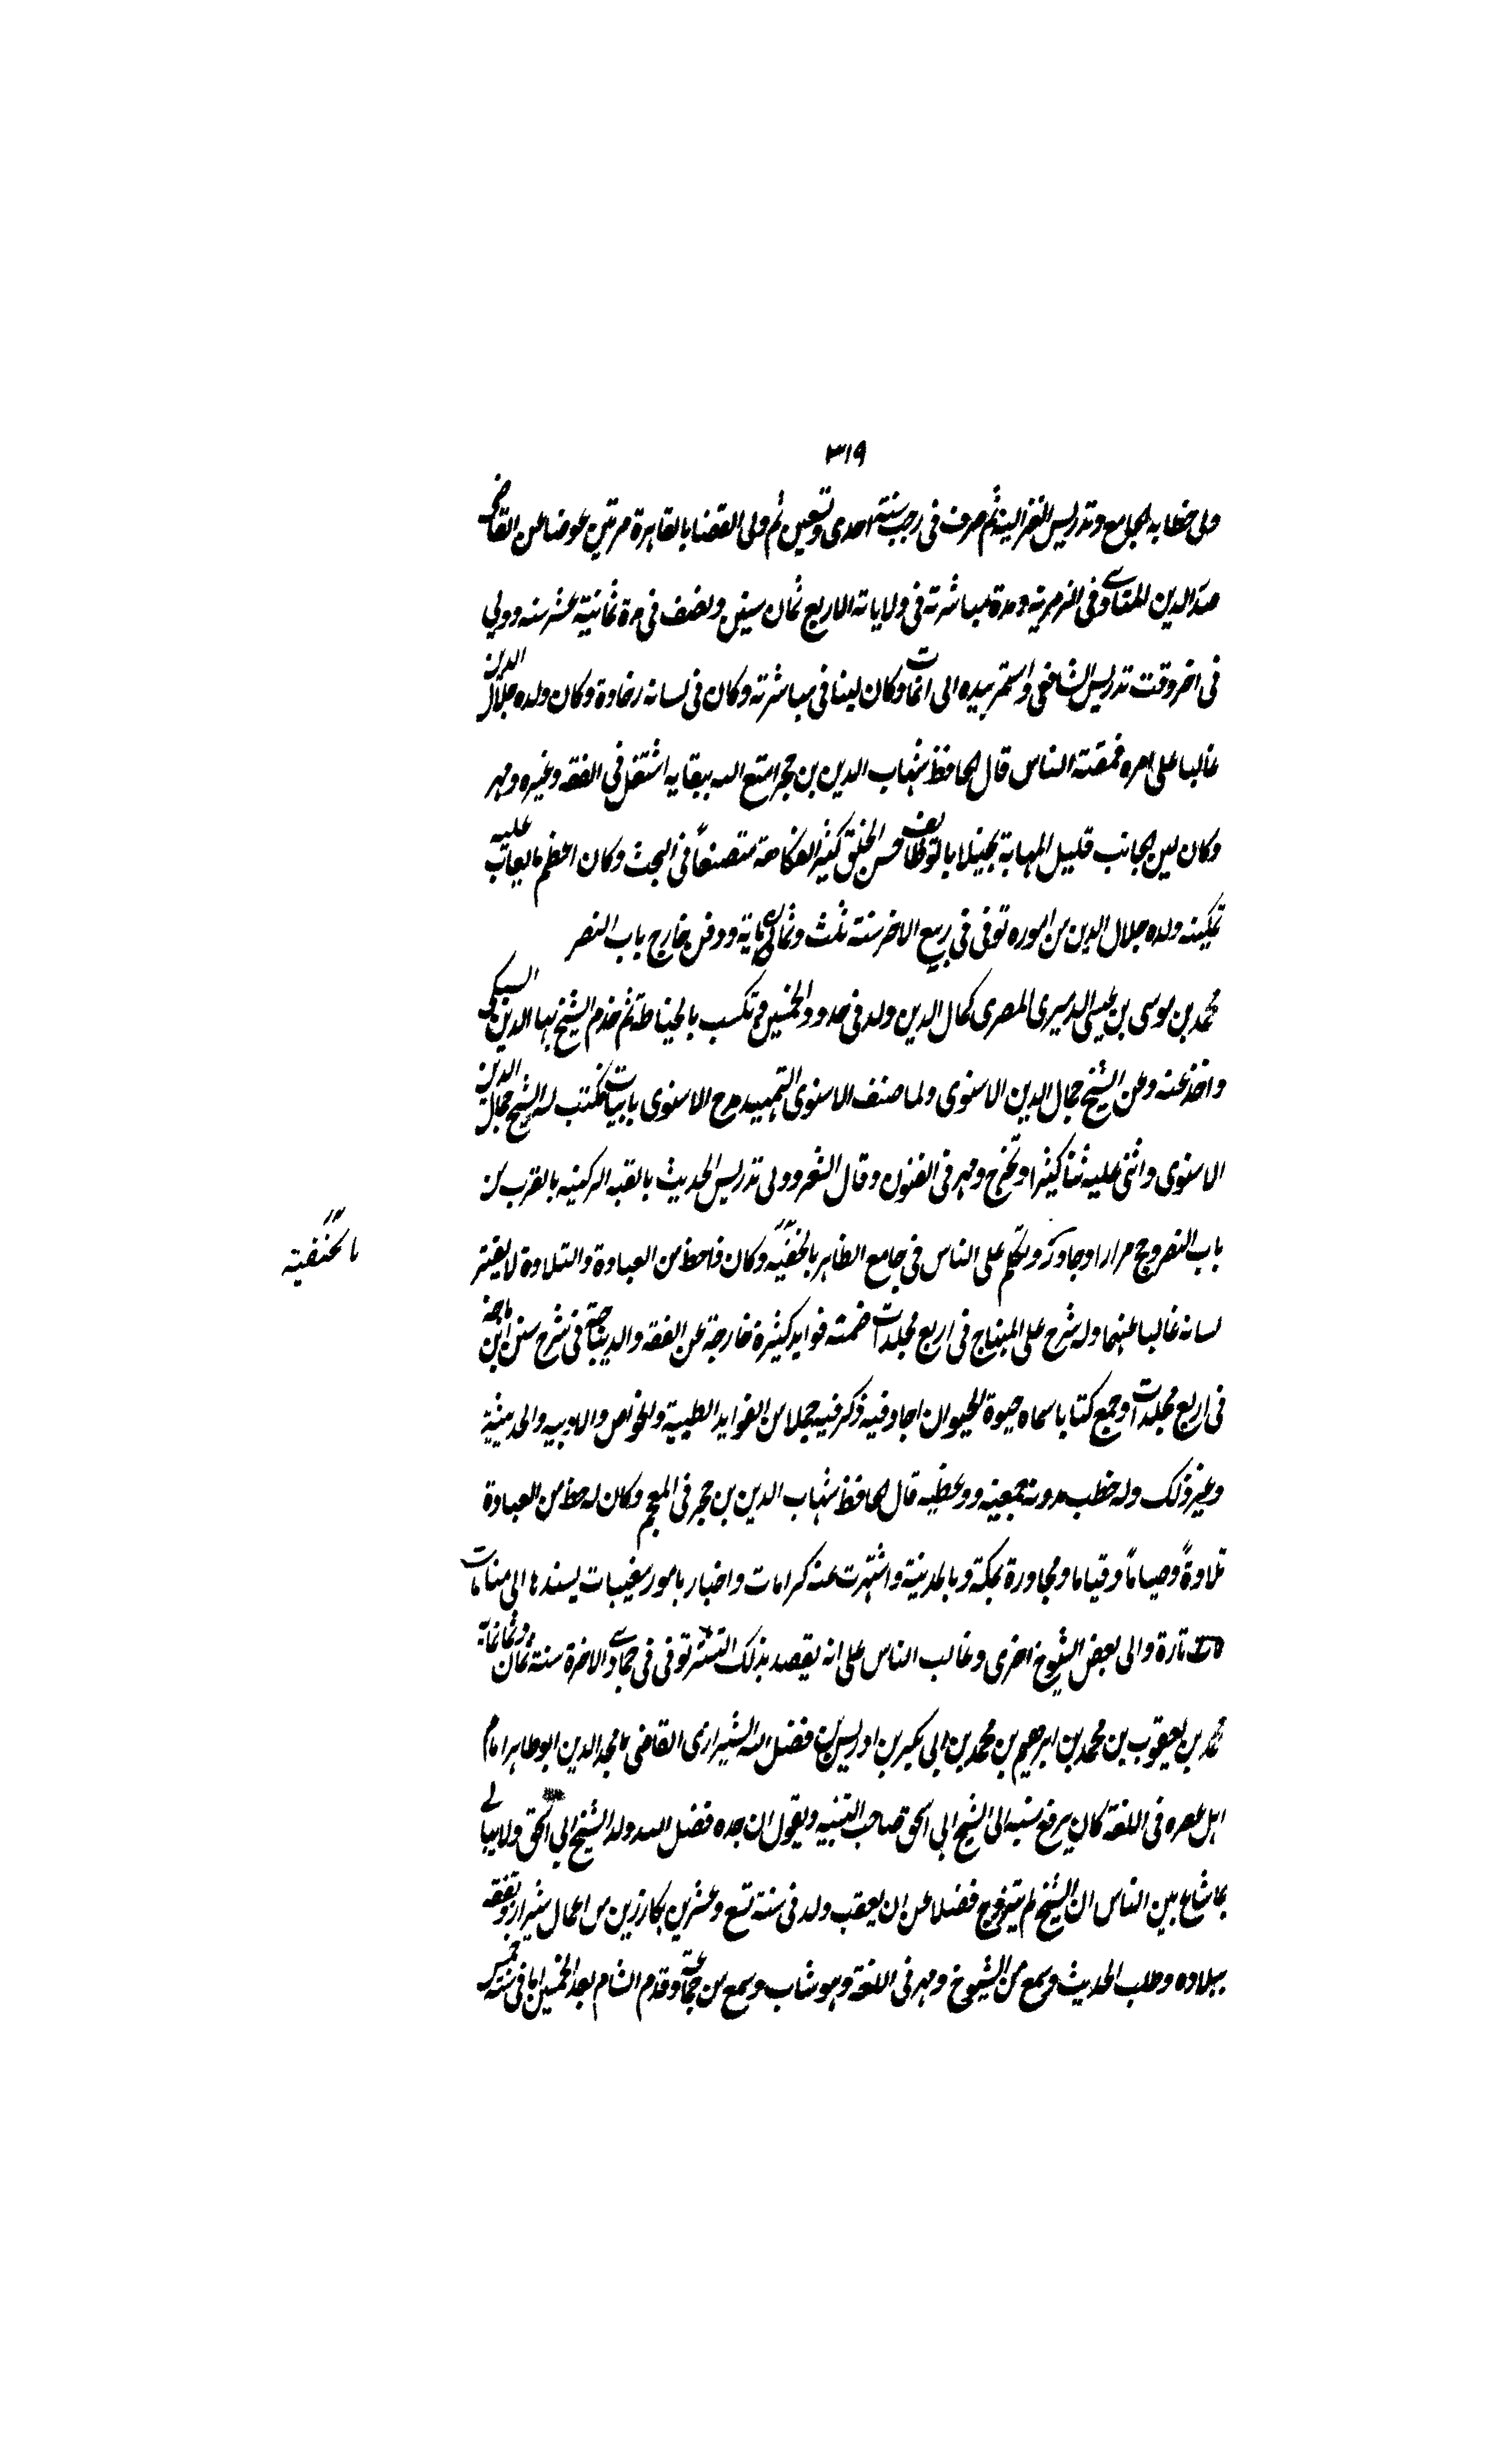 ٣١٩
ولى خطابه الجامع وتدريس الغزالية ثم صرف فى رجب سنة احدى وتسعين ثم ولى القضا بالقاهرة مرتين عوضا عن القاضى
صدر الدين المناوى فى المرتين ومدة مباشرته فى ولاياته الاربع ثمان سنين ونصف فى مدة ثمانية عشر سنه وولي
فى اخر وقت تدريس الشافعى واستمر بيده الى ان مات وكان لينا فى مباشرته وكان فى لسانه رخاوة وكان ولده جلال الدين
غالبا على امره فمقته الناس قال الحافظ شهاب الدين بن حجر امتع الله ببقايه اشتغل فى الفقه وغيره ومهر
وكان لين الجانب قليل المهابة بخيلا بالوظائف حسن الخلق كثير الفكاهة متصنعاً فى البحث وكان اعظم ما يعاب عليه
تمكينه ولده جلال الدين من اموره توفى فى ربيع الاخر سنة ثلث وثمان ماية ودفن خارج باب النصر
محمد بن موسى بن عيسى الدميرى المصرى كمال الدين ولد فى حدود الخمسين وتكسب بالخياطة ثم خدم الشيخ بها الدين السبكى
واخذ عنه وعن الشيخ جمال الدين الاسنوى ولما صنف الاسنوى التمهيد مدح الاسنوى بابيات فكتب له الشيخ جمال الدين
الاسنوى واثنى عليه ثنا كثيرا وتخرج ومهر فى الفنون وقال الشعر وولى تدريس الحديث بالقبه الركنيه بالقرب من
باب النصر وحج مرارا وجاور وتكلم على الناس فى جامع الظاهر بالحنفيه وكان ذا حظ من العبادة والتلاوة لا يفتر
بالحنفية
لسانه غالبا عنهما وله شرح على المنهاج فى اربع مجلدات ضمنه فوايد كثيرة خارجة عن الفقه والديباجة فى شرح سنن ابن ماجه
فى اربع مجلدات وجمع كتابا سماه حيوة الحيوان اجاد فيه ذكر فيه جملا من الفوايد الطبية والخواص والادبيه والحديثية
وغير ذلك وله خطب مدونة جمعية ووعظيه قال الحافظ شهاب الدين بن حجر فى المعجم وكان له حظ من العبادة
تلاوةً وصياماً وقياما ومجاورة بمكة وبالمدينة واشتهرت عنه كرامات واخبار بامور مغيبات يسندها الى منامات
تارة والى بعض الشيوخ اخرى وغالب الناس على انه يقصد بذلك التستر توفى فى جمادى الاخرة سنة ثمان وثمانماية
محمد بن يعقوب بن محمد بن ابرهيم بن محمد بن ابى بكر بن ادريس بن فضل الله الشيرازى القاضى مجد الدين ابو طاهر امام
اهل عصره فى اللغة كان يرفع نسبه الى الشيخ ابى اسحق صاحب التنبيه ويقول ان جده فضل الله ولد الشيخ ابى اسحق ولا يبالي
بما شاع بين الناس ان الشيخ لم يتزوج فضلا عن ان يعقب ولد فى سنة تسع وعشرين بكارزين من اعمال شيراز وتفقه
ببلاده وطلب الحديث وسمع من الشيوخ ومهر فى اللغة وهو شاب وسمع من جماعة وقدم الشام بعد الخمسين اما فى سنة خمس